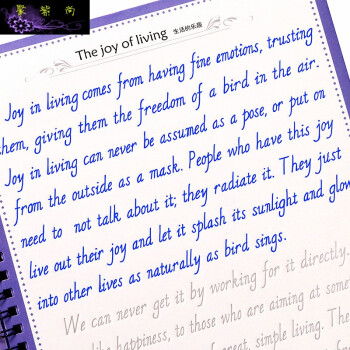 紫紫尚
The joy of living 生活的乐趣
Joy in living comes from having fine emotions, trusting
them, giving them the freedom of a bird in the air.
Joy in living can never be assumed as a pose, or put on
from the outside as a mask. People who have this joy
need to not talk about it; they radiate it. They just
live out their joy and let it splash its sunlight and glow
into other lives as naturally as bird sings.
We can never get it by working for it directly.
like happiness, to those who are aiming at some
erent, simple living. The